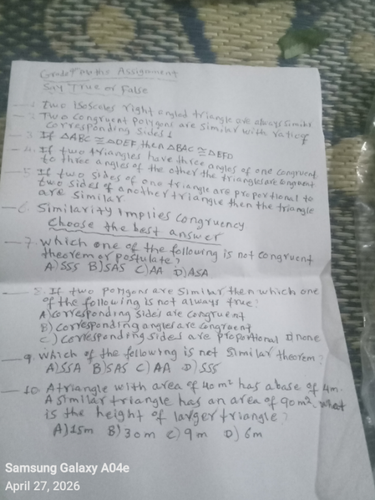 Grade Ten Maths Assignment
Say True or False
1. Two Isosceles right angled triangle are always similar
2. Two congruent polygons are similar with ratio of
corresponding sides 1
3. If ΔABC ≅ ΔDEF then ΔBAC ≅ ΔEFD
4. If two triangles have three angles of one congruent
to three angles of the other the triangles are congruent
5. If two sides of one triangle are proportional to
two sides of another triangle then the triangle
are similar
6. Similarity Implies Congruency
Choose the best answer
7. which one of the following is not congruent
theorem or postulate?
A) SSS B) SAS C) AA D) ASA
8. If two polygons are Similar then which one
of the following is not always true?
A) corresponding sides are congruent
B) corresponding angles are congruent
C) corresponding sides are proportional D) none
9. which of the following is not Similar theorem?
A) SSA B) SAS C) AA D) SSS
10. A triangle with area of 40m² has a base of 4m.
A similar triangle has an area of 90m². what
is the height of larger triangle?
A) 15m B) 30m C) 9m D) 6m
Samsung Galaxy A04e
April 27, 2026